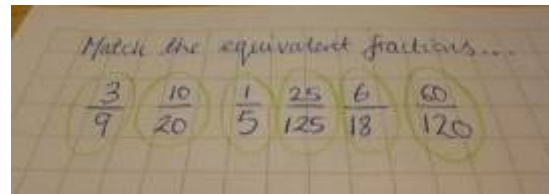 Match the equivalent fractions...
3/9 10/20 1/5 25/125 6/18 60/120